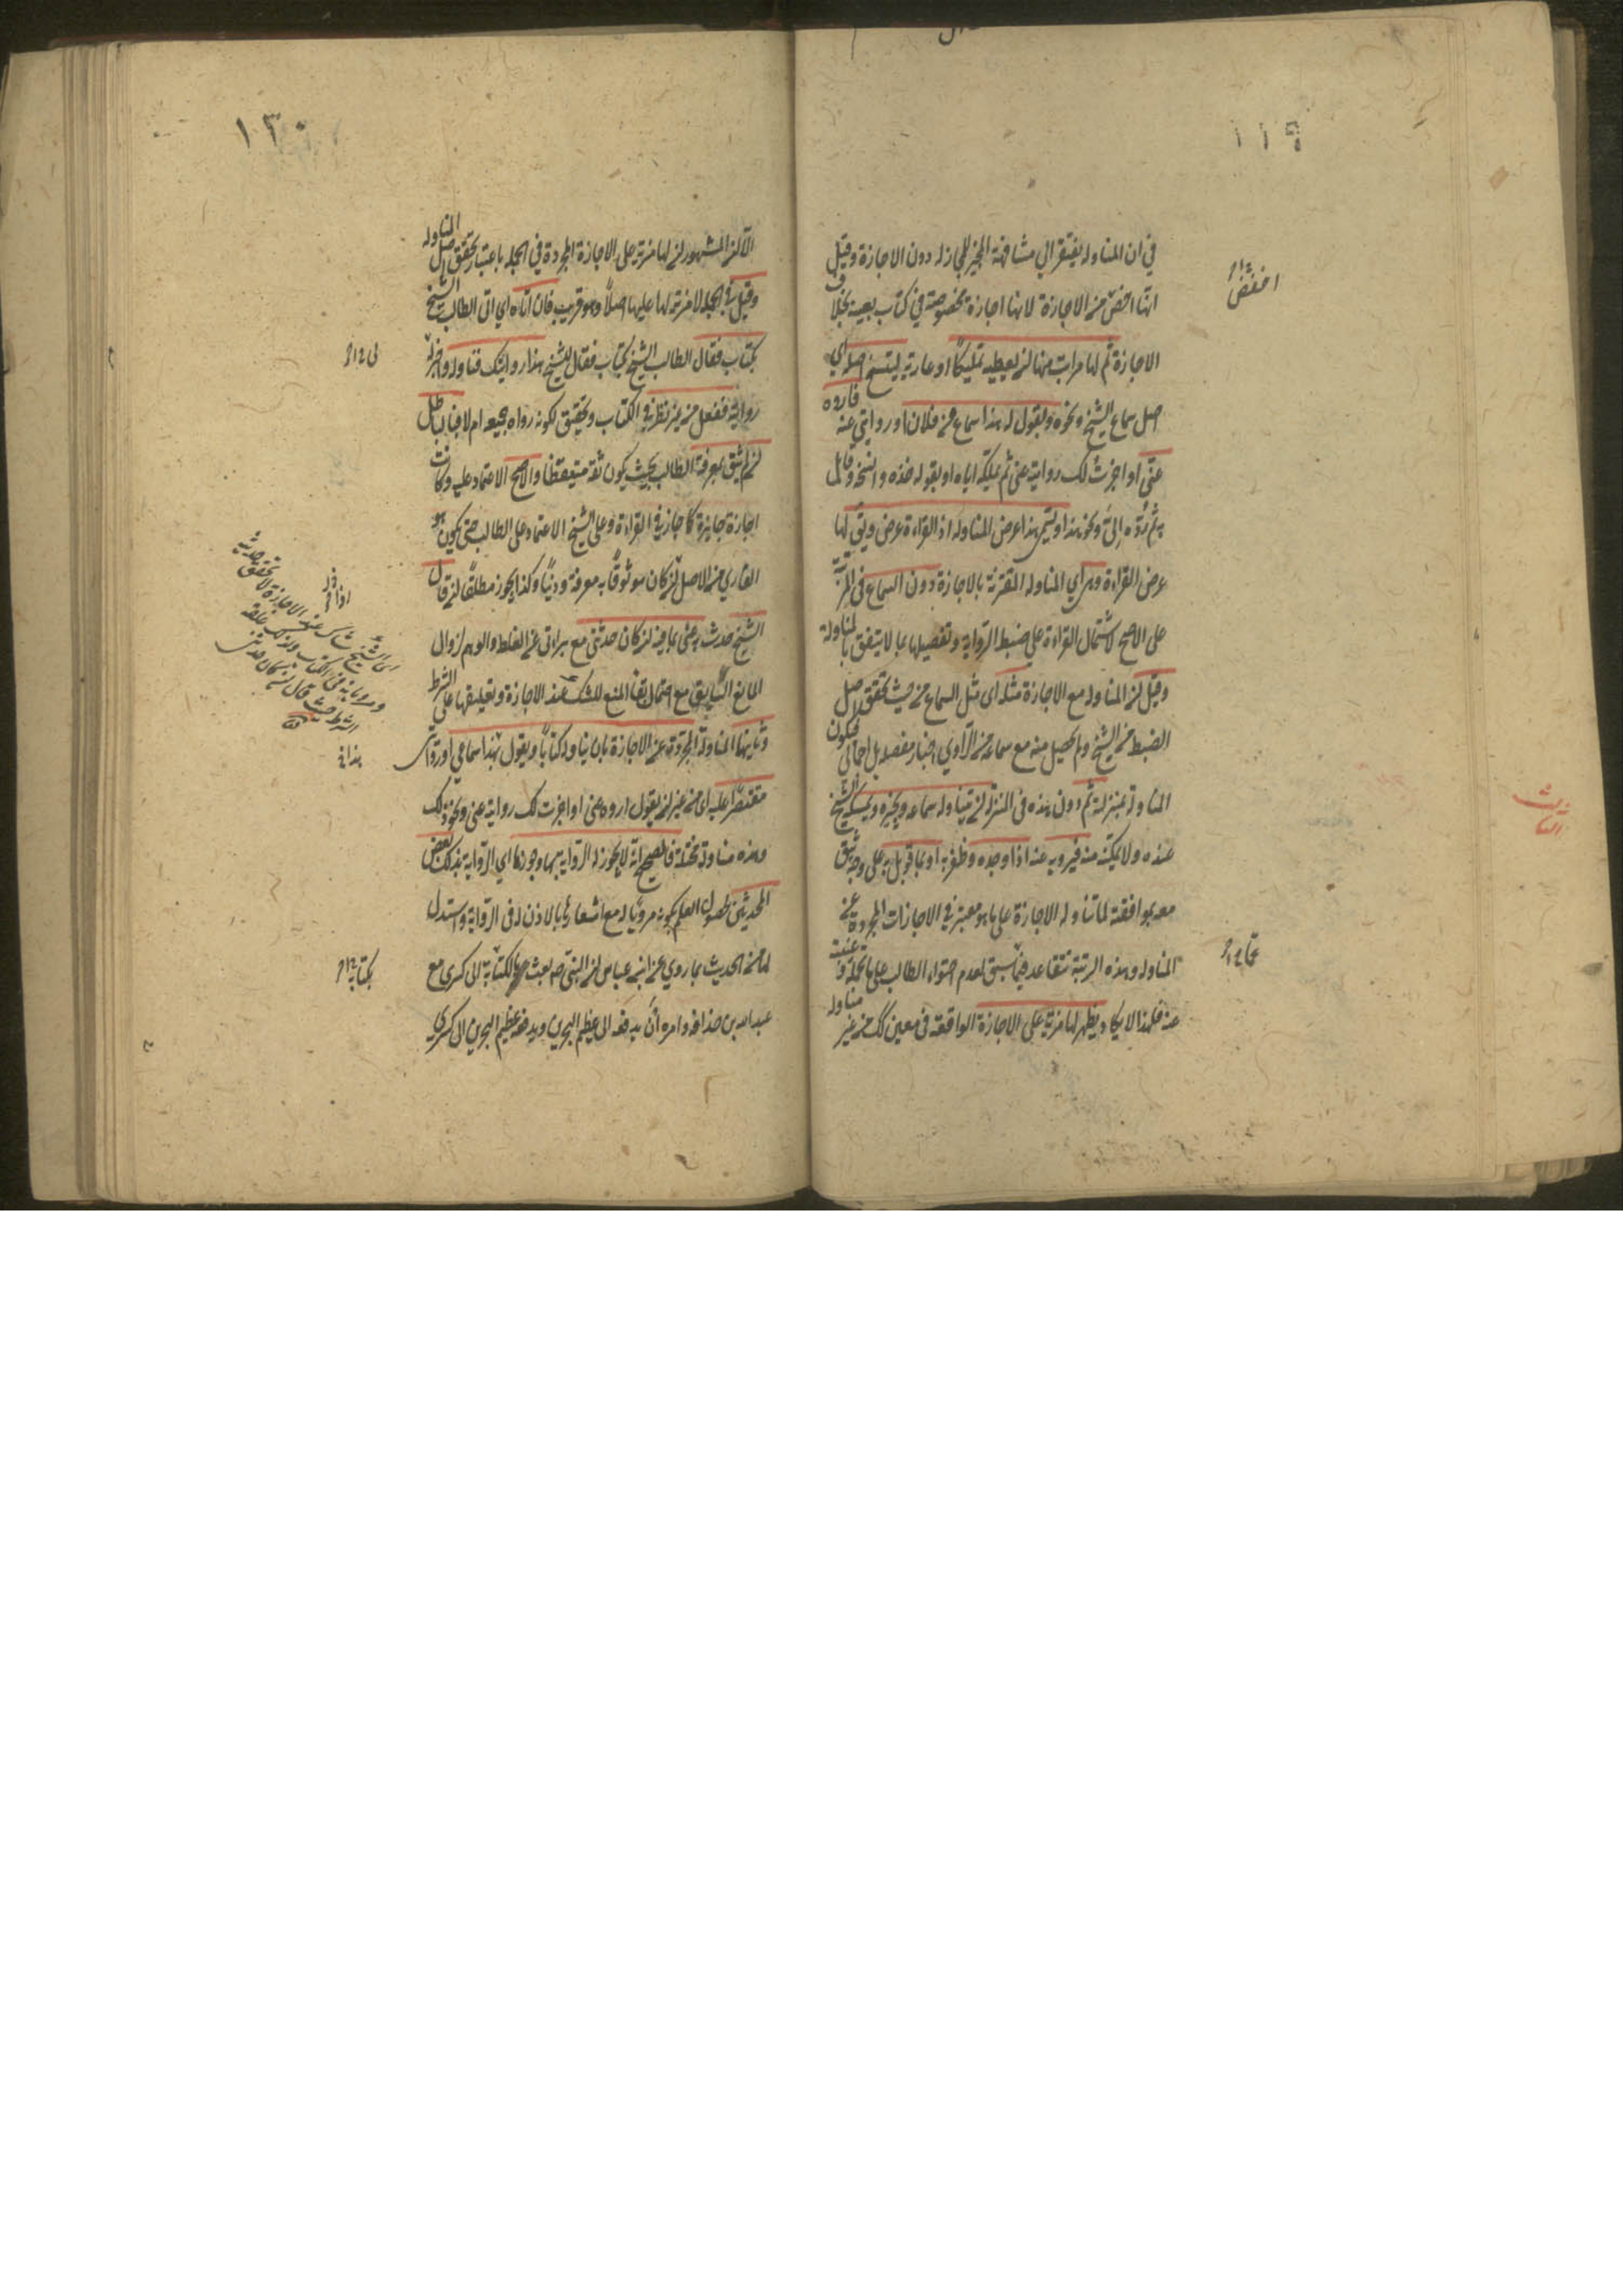 ١١٩
في ان المناوله يفتقر الى مشافهة المجيز للمجاز له دون الاجازة وقيل
انها اخص من الاجازة لانها اجازة مخصوصة في كتاب بعينه بخلاف
الاجازة ثم لها مراتب منها ان يعطيه تمليكا او عارية لينسخ اصله اي
اصل سماع الشيخ ونحوه ويقول له هذا سماعي من فلان او روايتي عنه فاروه
عني او اجزت لك روايته عني ثم يملكه اياه او يقول خذه وانسخه وقابل
به ثم رده الي ونحو هذا ويسمى هذا عرض المناوله اذ القراءة عرض ويق لها
عرض القراءة وهي اي المناوله المقترنة بالاجازة دون السماع في المرتبة
على الاصح لاشتمال القراءة على ضبط الرواية وتفصيلها بما لا يتفق بالمناولة
وقيل ان المناوله مع الاجازة مثله اى مثل السماع من حيث تحقق اصل
الضبط من الشيخ ولم يحصل منه مع سماعه من الراوي اخبار مفصل بل اجمالي فيكون
المناولة بمنزلته ثم دون هذه في المنزلة ان يناوله سماعه ويجيزه ويمسكه الشيخ
عنده ولا يمكنه منه فيرويه عنه اذا وجده وظفر به او بما قوبل به على وجه يثق
معه بموافقته لما تناوله الاجازة على ما هو معتبر في الاجازات المجردة عن
المناوله وهذه المرتبة تتقاعد عما سبق لعدم احتواء الطالب على ما تحمله وغيبته
عنه فلهذا لا يكاد يظهر لها مزية على الاجازة الواقعة في معين كك من غير مناوله
اخفض
الثالث
١٣٠
الا ان المشهور ان لها مزية على الاجازة المجردة في الجمله باعتبار تحقق اصل المناوله
وقيل في الجمله لا مزية لها عليها اصلا وهو قريب فان اتاه اي اتى الطالب الشيخ
بكتاب فقال الطالب الشيخ بكتاب فقال للشيخ هذا روايتك فناولنيه واجزلي
روايته ففعل من غير نظر في الكتاب وتحقيق لكونه رواه جميعه ام لا فباطل
ان لم يثق بمعرفة الطالب بحيث يكون ثقة متيقظا والا صح الاعتماد عليه وكانت
اجازة جايزة كما جاز في القراءة وعلى الشيخ الاعتماد على الطالب حتى يكون هو
القاري من الاصل ان كان موثوقا به معرفة ودينا وكذا يجوز مطلقا ان قال
الشيخ حدث به عني بما فيه ان كان حديثي مع براءتي من الغلط والوهم لزوال
المانع السابق مع احتمال بقاء المنع للشك عند الاجازة وتعليقها على الشرط
وثانيها المناولة المجردة عن الاجازة بان يناوله كتابا ويقول هذا سماعي او روايتي
مقتصرا عليه اى من غير ان يقول اروه عني او اجزت لك روايته عني ونحو ذلك
وهذه مناولة مختلة فالصحيح انه لا يجوز له الرواية بها وجوزها اي الرواية بذلك بعض
المحدثين لحصول العلم بكونه مرويا له مع اشعارها بالاذن له في الرواية واستدل
له من الحديث بما روي عن ابن عباس ان النبي ص بعث بكتابه الى كسرى مع
عبد الله بن حذافه وامره ان يدفعه الى عظيم البحرين ويدفعه عظيم البحرين الى كسرى
بكتابه